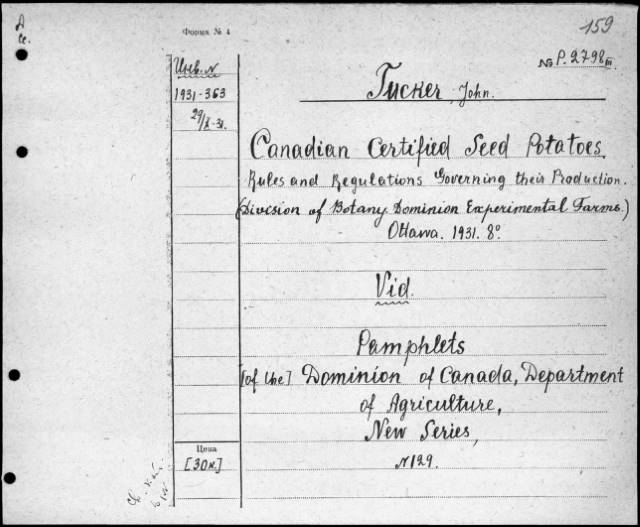 159
Форма № 4
№ P. 2798
Инв. N
1931-363
Tucker, John.
Canadian Certified Seed Potatoes.
Rules and Regulations Governing their Production.
(Division of Botany Dominion Experimental Farms.)
Ottawa. 1931. 8°.
Vid.
Pamphlets
[of the] Dominion of Canada, Department
of Agriculture,
New Series,
N 129.
Цена
[30к.]